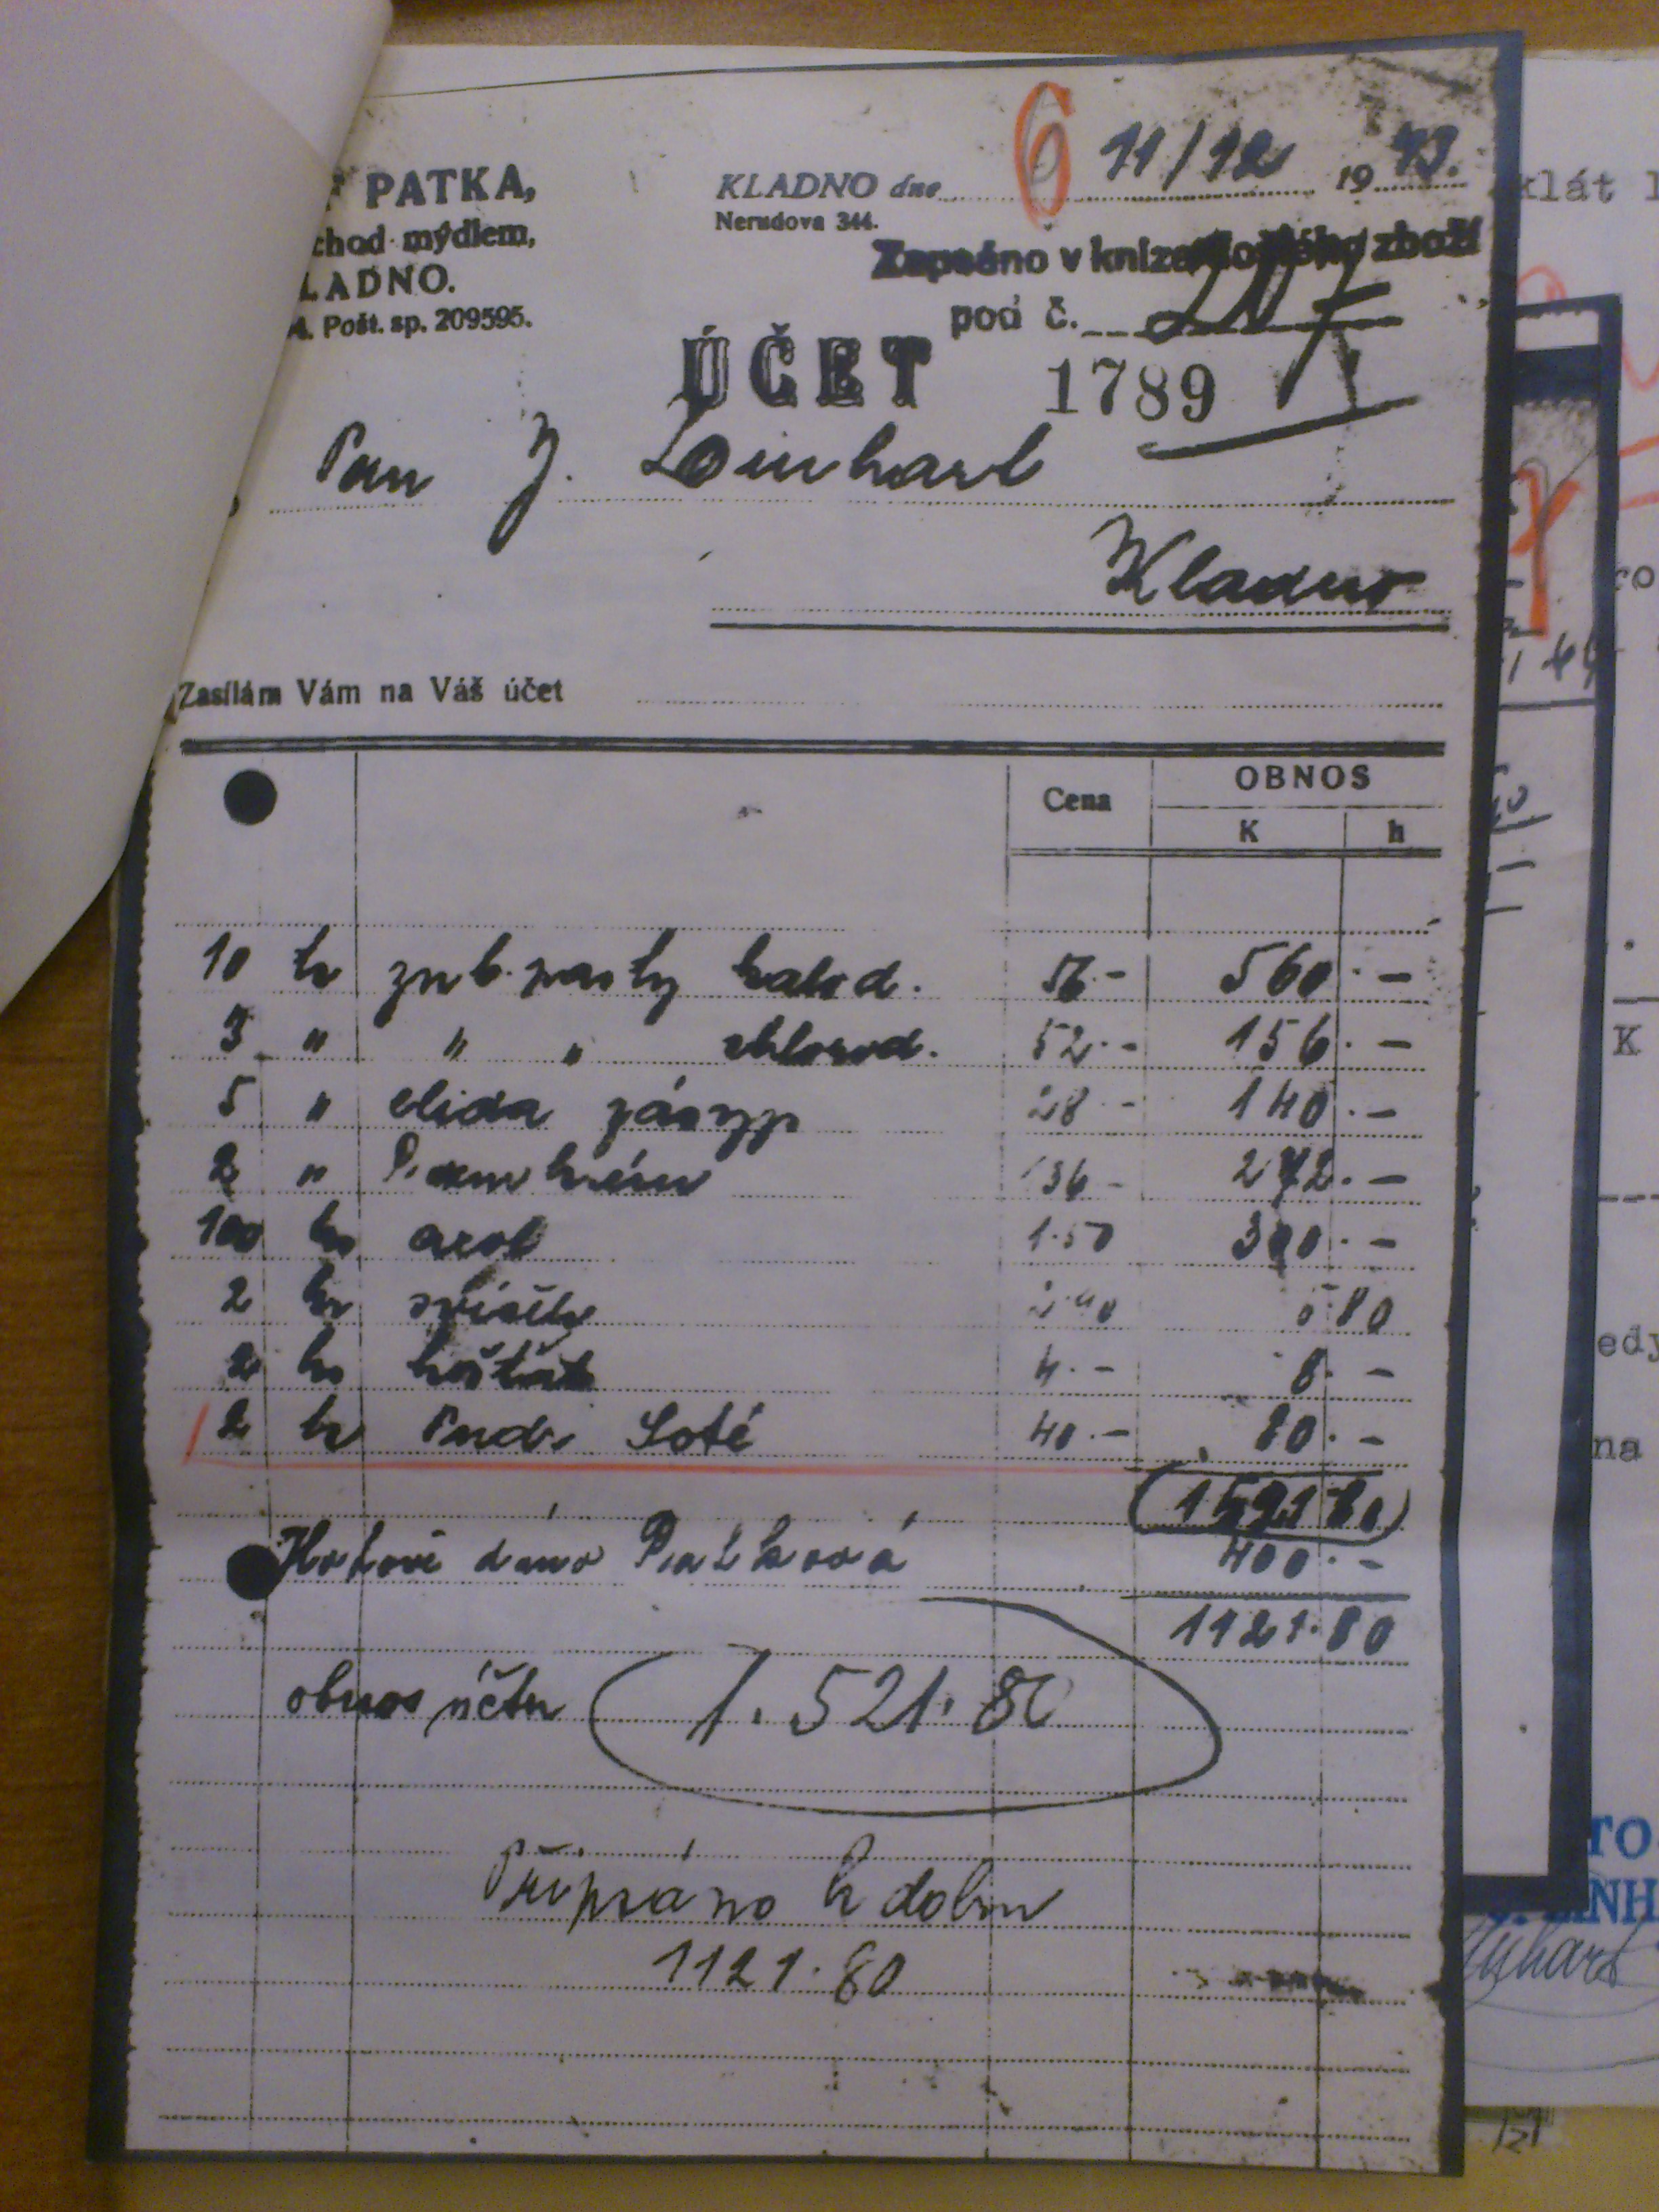 PATKA,
chod mýdlem,
LADNO.
Pošt. sp. 209595.
KLADNO dne 6 11/12 1943.
Nerudova 344.
Zapsáno v knize došlého zboží
pod č.
ÚČET 1789
Pan J. Linhart
Kladno
Zasílám Vám na Váš účet
Cena OBNOS
K h
10 kr zub. pasty kalod. 56.- 560.-
3 " " " chlorod. 52.- 156.-
5 " elida zásyp 28.- 140.-
2 " krém 136.- 272.-
100 ks 1.50 300.-
2 kr svíčky 2.90 5 80
2 ks košťat 4.- 8.-
2 kr Pudr Soté 40.- 80.-
1521 80
Hotově dáno Patková 400.-
1121.80
obnos účtu 1.521.80
Připsáno k dobru
1121.80
klát
K
edy
na
TO
J. LINH